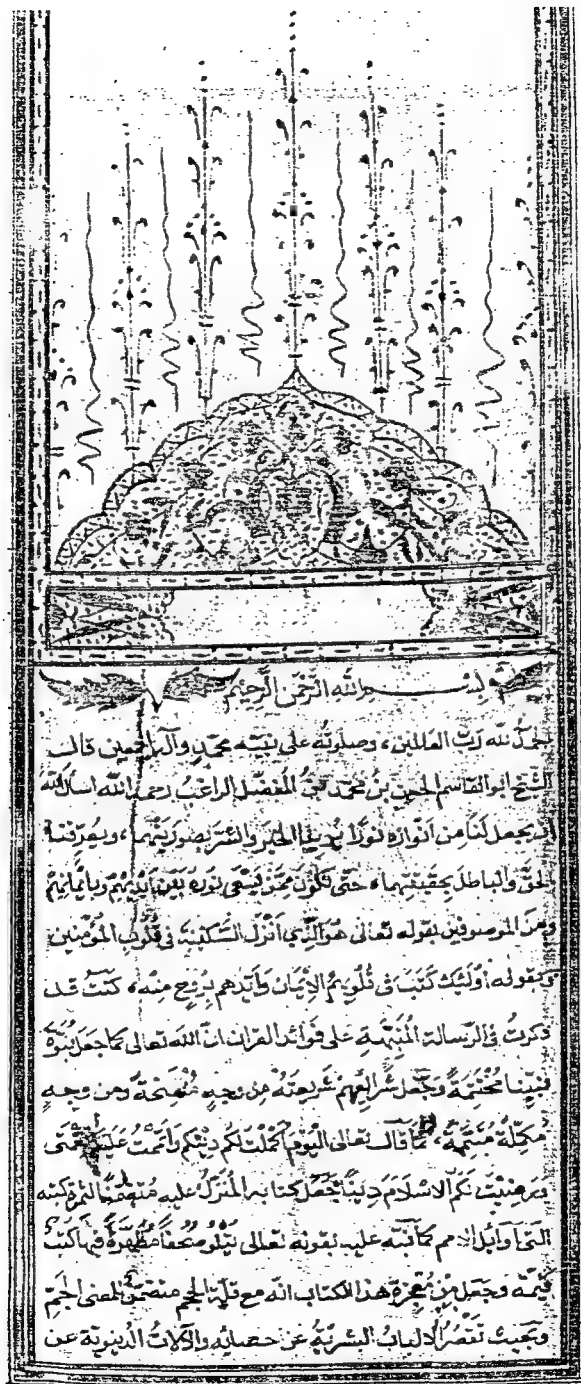 بسم الله الرحمن الرحيم
الحمد لله ربّ العالمين، وصلوته على نبيّه محمّدٍ وآله اجمعين قال
الشّيخ ابو القاسم الحسين بن محمّد بن المفضّل الراغب رحمه الله اسال الله
ان يجعل لنا من انواره نورًا يرينا الخير والشّر بصورتيهما، ويعرّفنا
الحقّ والباطل بحقيقتيهما، حتّى نكون ممّن يسعى نوره بين ايديهم وبايمانهم
ومن الموصوفين بقوله تعالى هو الّذي انزل السّكينة في قلوب المؤمنين
وبقوله اولئك كتب في قلوبهم الايمان وايّدهم بروح منه، كنت قد
ذكرتُ في الرّسالة المنبّهة على فوائد القران انّ الله تعالى كما جعل نبوّة
نبيّنا مختتمةً وجعل شرائعهم شريعته من وجهٍ منتسخةً ومن وجهٍ
مكمّلةً متمّمةً، كما قال تعالى اليوم اكملت لكم دينكم واتممت عليكم نعمتى
ورضيت لكم الاسلام دينًا جعل كتابه المنزل عليه متضمّنًا لثمرة كتبه
الّتى اوايل الامم كما نبّه عليه بقوله تعالى يتلو صحفًا مطهّرةً فيها كتب
قيّمة وجعل من معجزة هذا الكتاب انّه مع قلّة الحجم متضمّن للمعنى الجمّ
وبحيث تقصر الالباب البشريّة عن احصائه والآلات الدّنيويّة عن